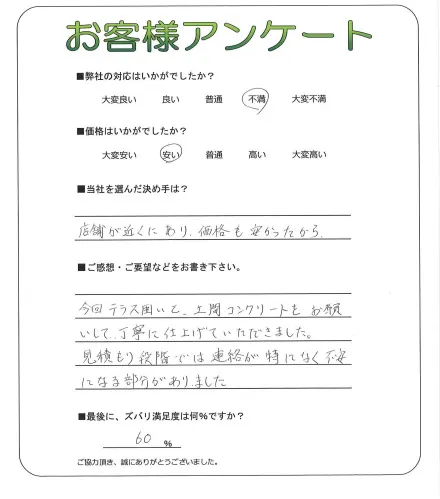 お客様アンケート
■弊社の対応はいかがでしたか？
大変良い 良い 普通 不満 大変不満
■価格はいかがでしたか？
大変安い 安い 普通 高い 大変高い
■当社を選んだ決め手は？
店舗が近くにあり、価格も安かったから。
■ご感想・ご要望などをお書き下さい。
今回テラス囲いと、土間コンクリートをお願
いして、丁寧に仕上げていただきました。
見積もり段階では連絡が特になく不安
になる部分がありました
■最後に、ズバリ満足度は何%ですか？
60 %
ご協力頂き、誠にありがとうございました。